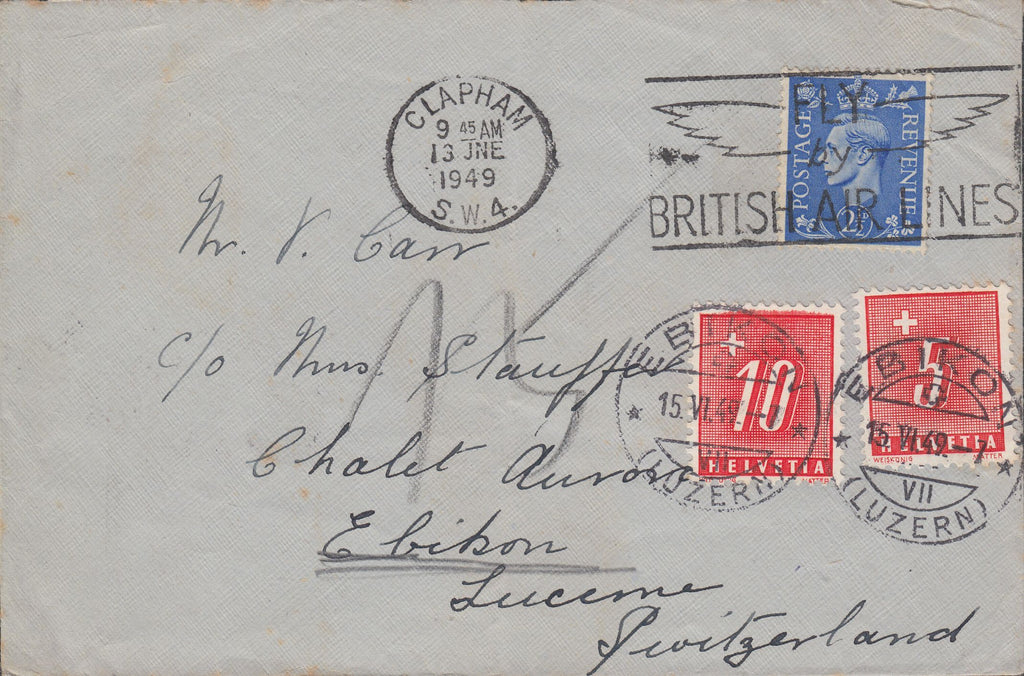 CLAPHAM
9 45 AM
13 JNE
1949
S.W.4.
FLY
by
BRITISH AIR LINES
POSTAGE REVENUE
2½D
Mr. V. Carr
c/o Mrs. Stauffer
Chalet Aurora
Ebikon
Lucerne
Switzerland
15
10
HELVETIA
EBIKON
15.VI.49.–7
VIII
(LUZERN)
5
HELVETIA
WEISKÖNIG
EBIKON
15.VI.49.–7
VII
(LUZERN)